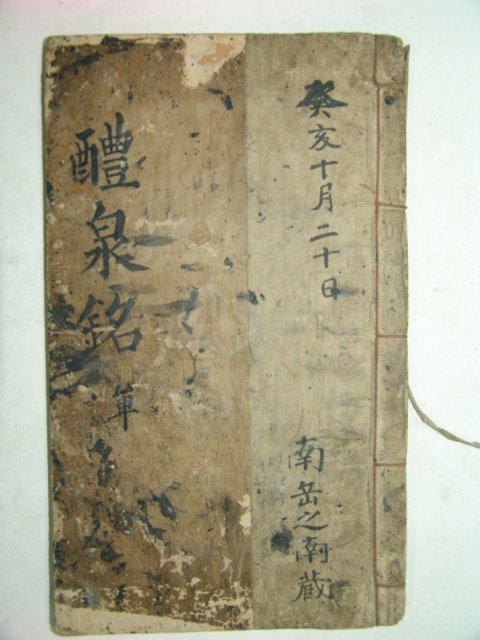 癸亥十月二十日
南岳之南蔵
醴泉銘 單